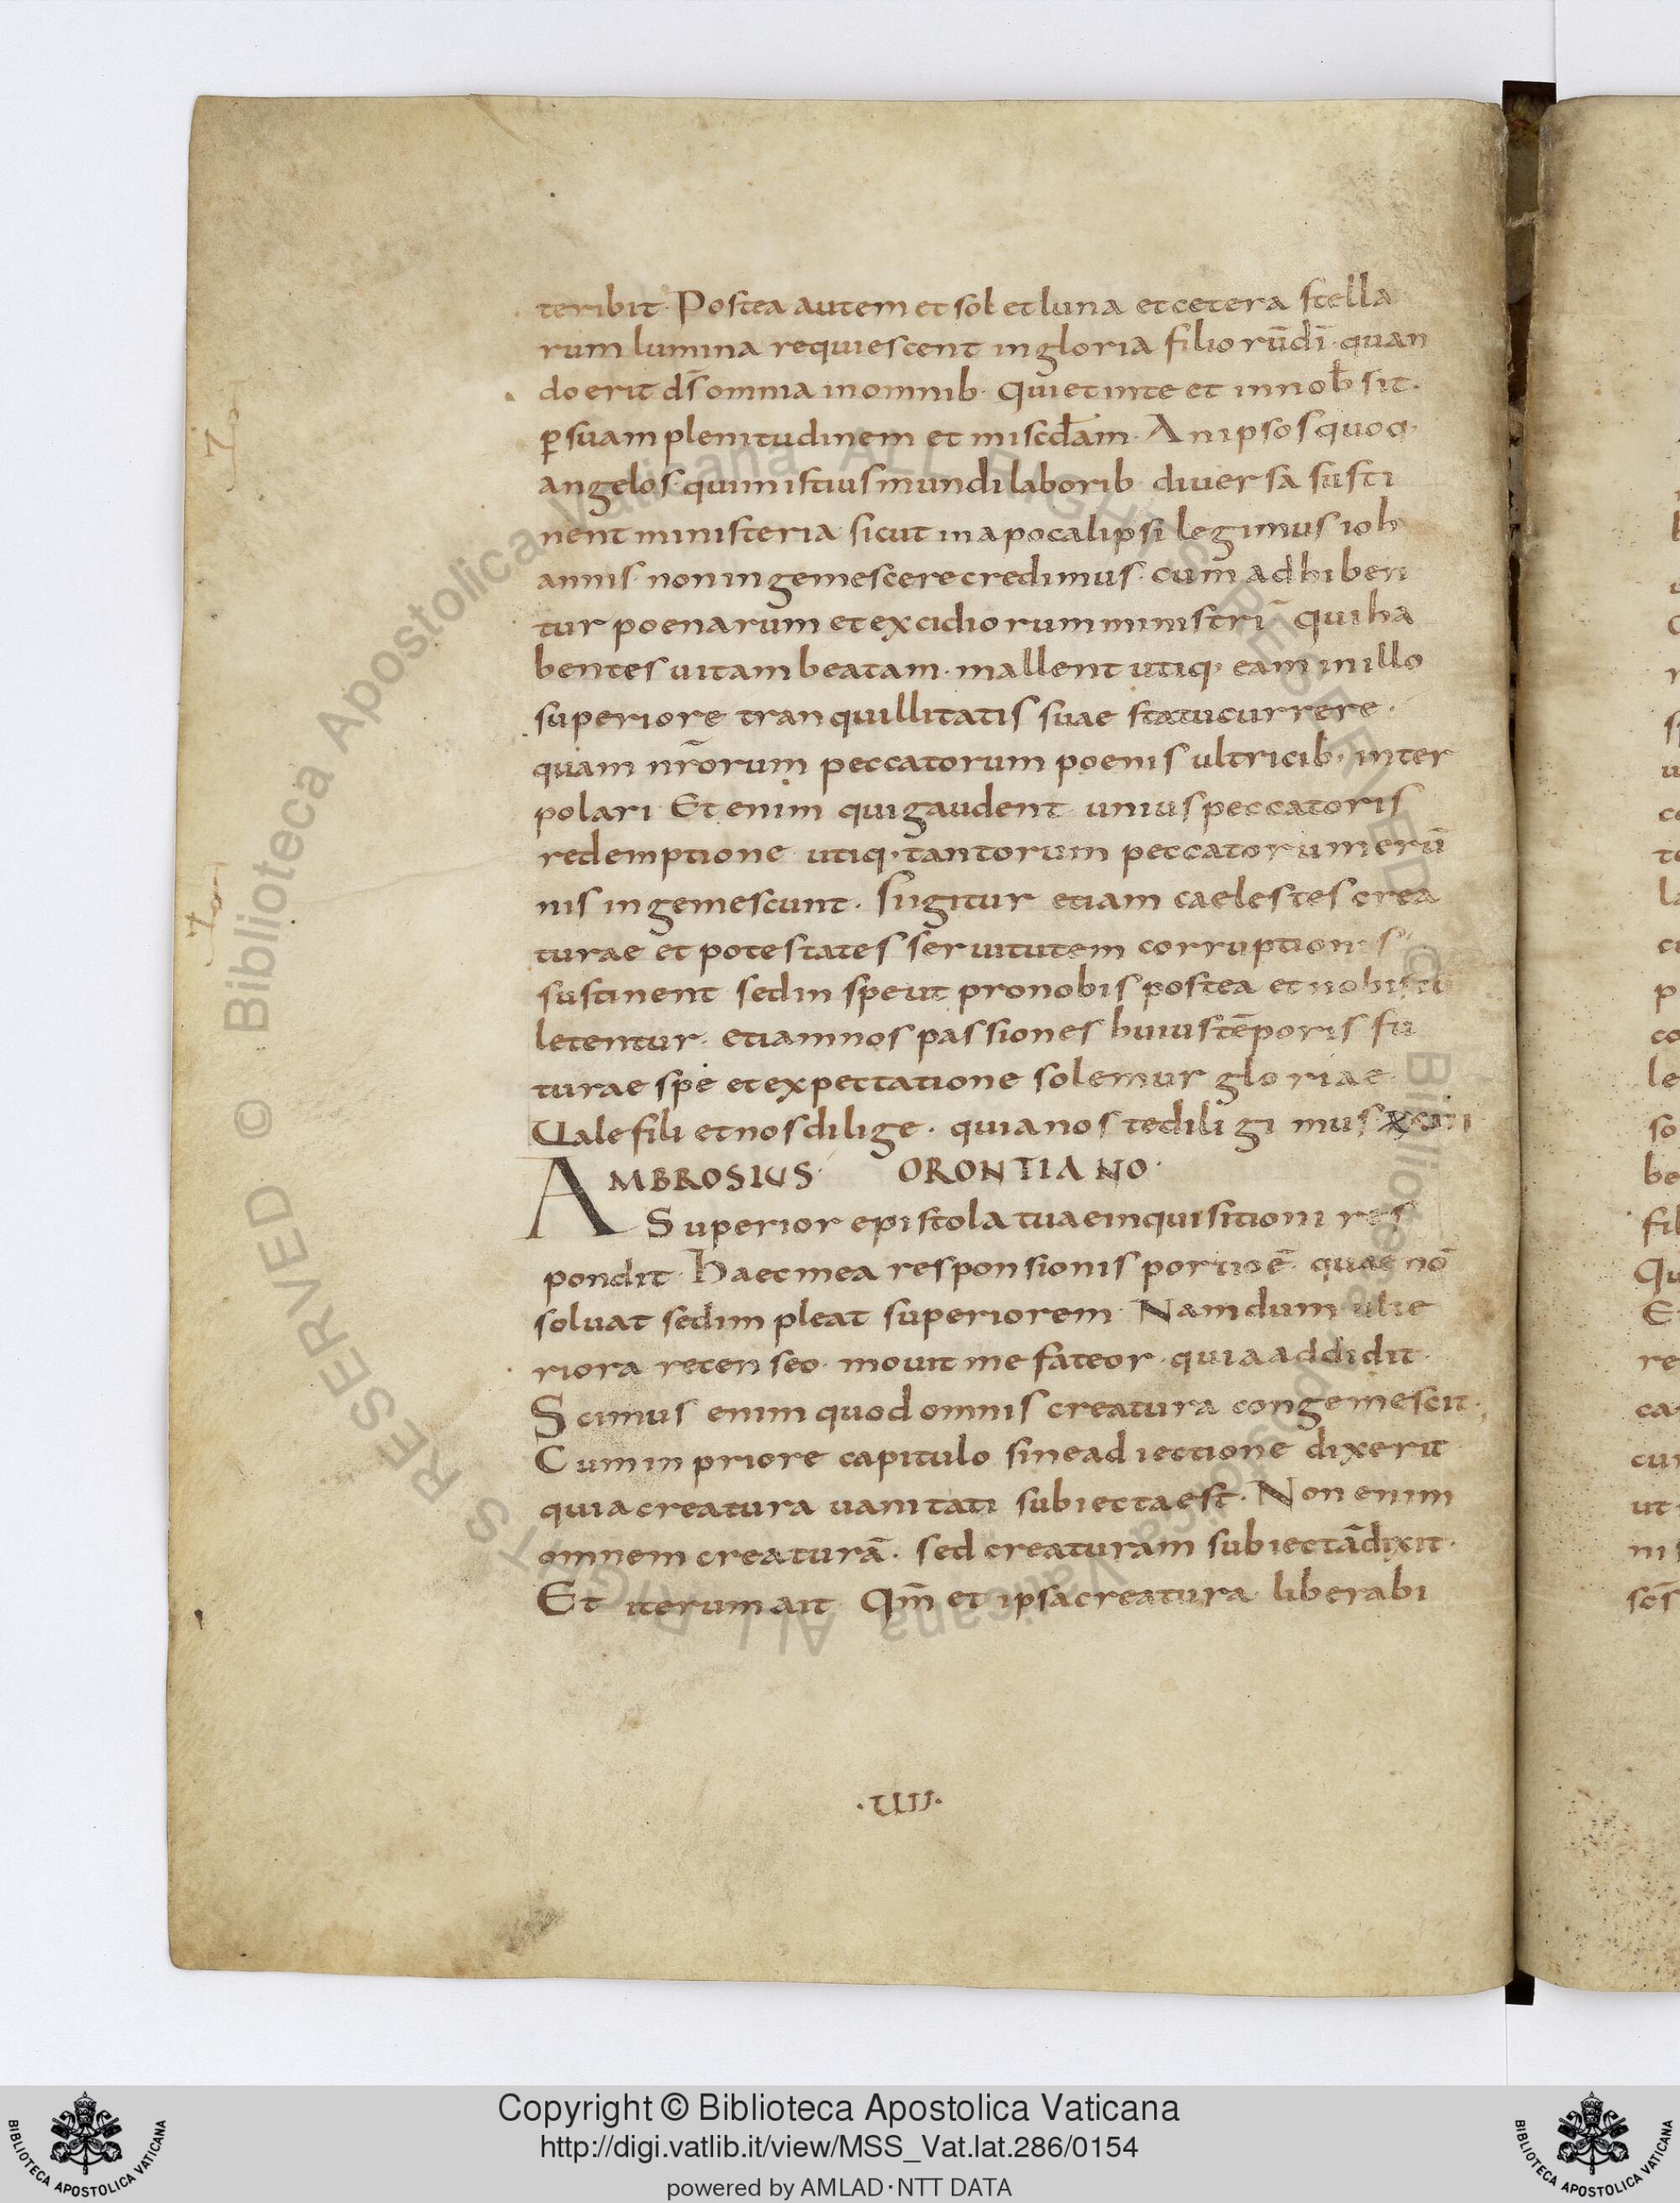 teribit· Postea autem et sol et luna et cetera stella
rum lumina requiescent in gloria filiorū dī· quan
do erit d̄s omnia in omnib· qui et in te et in nob̄ sit·
p̄ suam plenitudinem et misc̄dam· An ipsos quoq·
angelos· qui in istius mundi laborib· diuersa susti
nent ministeria sicut in apocalipsi legimus ioh
annis· non ingemescere credimus· cum adhiben
tur poenarum et excidiorum ministri qui ha
bentes uitam beatam· mallent utiq· eam in illo
superiore tranquillitatis suae statu currere·
quam nr̄orum peccatorum poenis ultricib· inter
polari Et enim qui gaudent unius peccatoris
redemptione utiq· tantorum peccatorum erū
nis ingemescunt· Si igitur etiam caelestes crea
turae et potestates seruitutem corruptionis
sustinent sed in spe ut pro nobis postea et nobis
letentur· etiam nos passiones huius tēporis fu
turae spe et expectatione solemur gloriae
Uale fili et nos dilige· quia nos te diligimus
AMBROSIUS· ORONTIANO·
Superior epistola tuae inquisitioni res
pondit· Haec mea responsionis portio ē· quae nō
soluat sed impleat superiorem· Nam dum ulte
riora recenseo· mouit me fateor· quia addidit·
Scimus enim quod omnis creatura congemescit·
Cum in priore capitulo sine adiectione dixerit
quia creatura uanitati subiecta est· Non enim
omnem creaturā· sed creaturam subiectā dixit·
Et iterum ait Qm̄ et ipsa creatura liberabi
·UIII·
© Biblioteca Apostolica Vaticana ALL RIGHTS RESERVED © Biblioteca Apostolica Vaticana ALL RIGHTS RESERVED
Copyright © Biblioteca Apostolica Vaticana
http://digi.vatlib.it/view/MSS_Vat.lat.286/0154
powered by AMLAD·NTT DATA
BIBLIOTECA APOSTOLICA VATICANA
BIBLIOTECA APOSTOLICA VATICANA